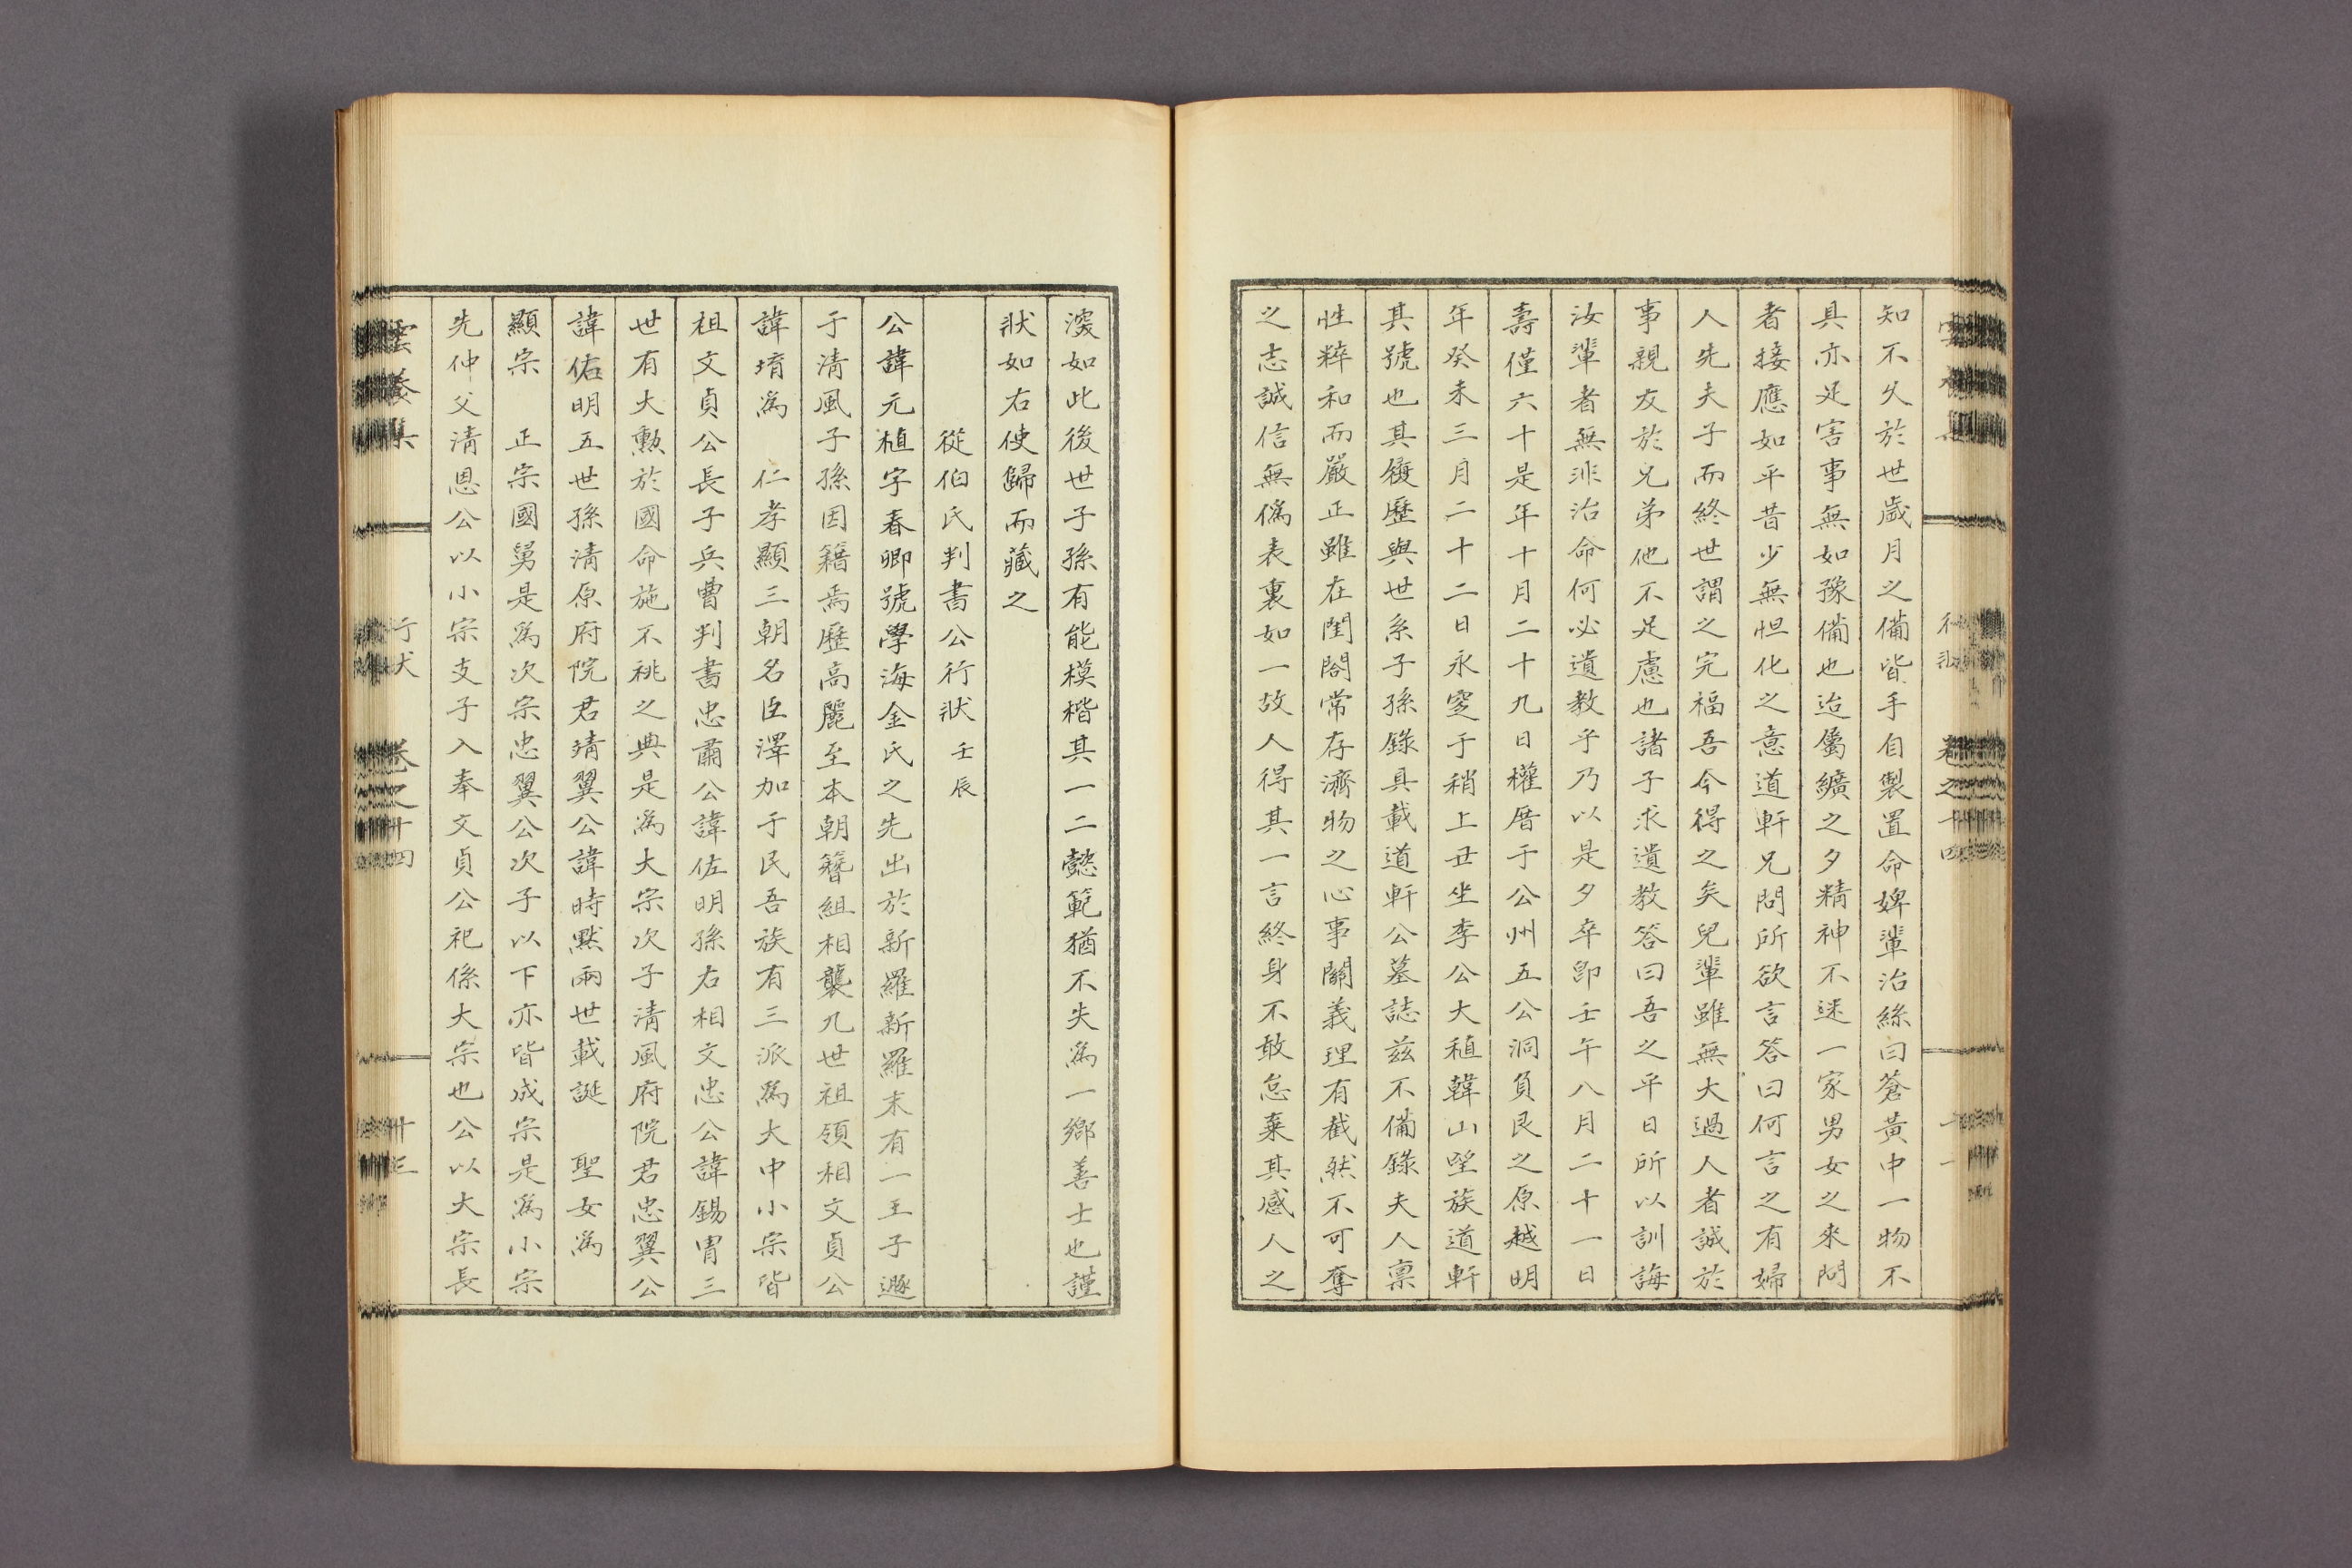 知不久於世歲月之備皆手自製置命婢輩治絲曰蒼黃中一物不
具亦足害事無如豫備也迨屬纊之夕精神不迷一家男女之來問
者接應如平昔少無怛化之意道軒兄問所欲言答曰何言之有婦
人先夫子而終世謂之完福吾今得之矣兒輩雖無大過人者誠於
事親友於兄弟他不足慮也諸子求遺教答曰吾之平日所以訓誨
汝輩者無非治命何必遺教乎乃以是夕卒卽壬午八月二十一日
壽僅六十是年十月二十九日權厝于公州五公洞負艮之原越明
年癸未三月二十二日永窆于稍上丑坐李公大稙韓山望族道軒
其號也其履歷與世系子孫錄具載道軒公墓誌兹不備錄夫人禀
性粹和而嚴正雖在閨閤常存濟物之心事關義理有截然不可奪
之志誠信無僞表裏如一故人得其一言終身不敢怠棄其感人之
深如此後世子孫有能模楷其一二懿範猶不失爲一鄕善士也謹
狀如右使歸而藏之
從伯氏判書公行狀 壬辰
公諱元植字春卿號學海金氏之先出於新羅新羅末有一王子遯
于淸風子孫因籍焉歷高麗至本朝簪組相襲九世祖領相文貞公
諱堉爲 仁孝顯三朝名臣澤加于民吾族有三派爲大中小宗皆
祖文貞公長子兵曹判書忠肅公諱佐明孫右相文忠公諱錫胄三
世有大勳於國命施不祧之典是爲大宗次子淸風府院君忠翼公
諱佑明五世孫淸原府院君靖翼公諱時默兩世載誕 聖女爲
顯宗 正宗國舅是爲次宗忠翼公次子以下亦皆成宗是爲小宗
先仲父淸恩公以小宗支子入奉文貞公祀係大宗也公以大宗長
雲養集 行狀 卷之十四 十三